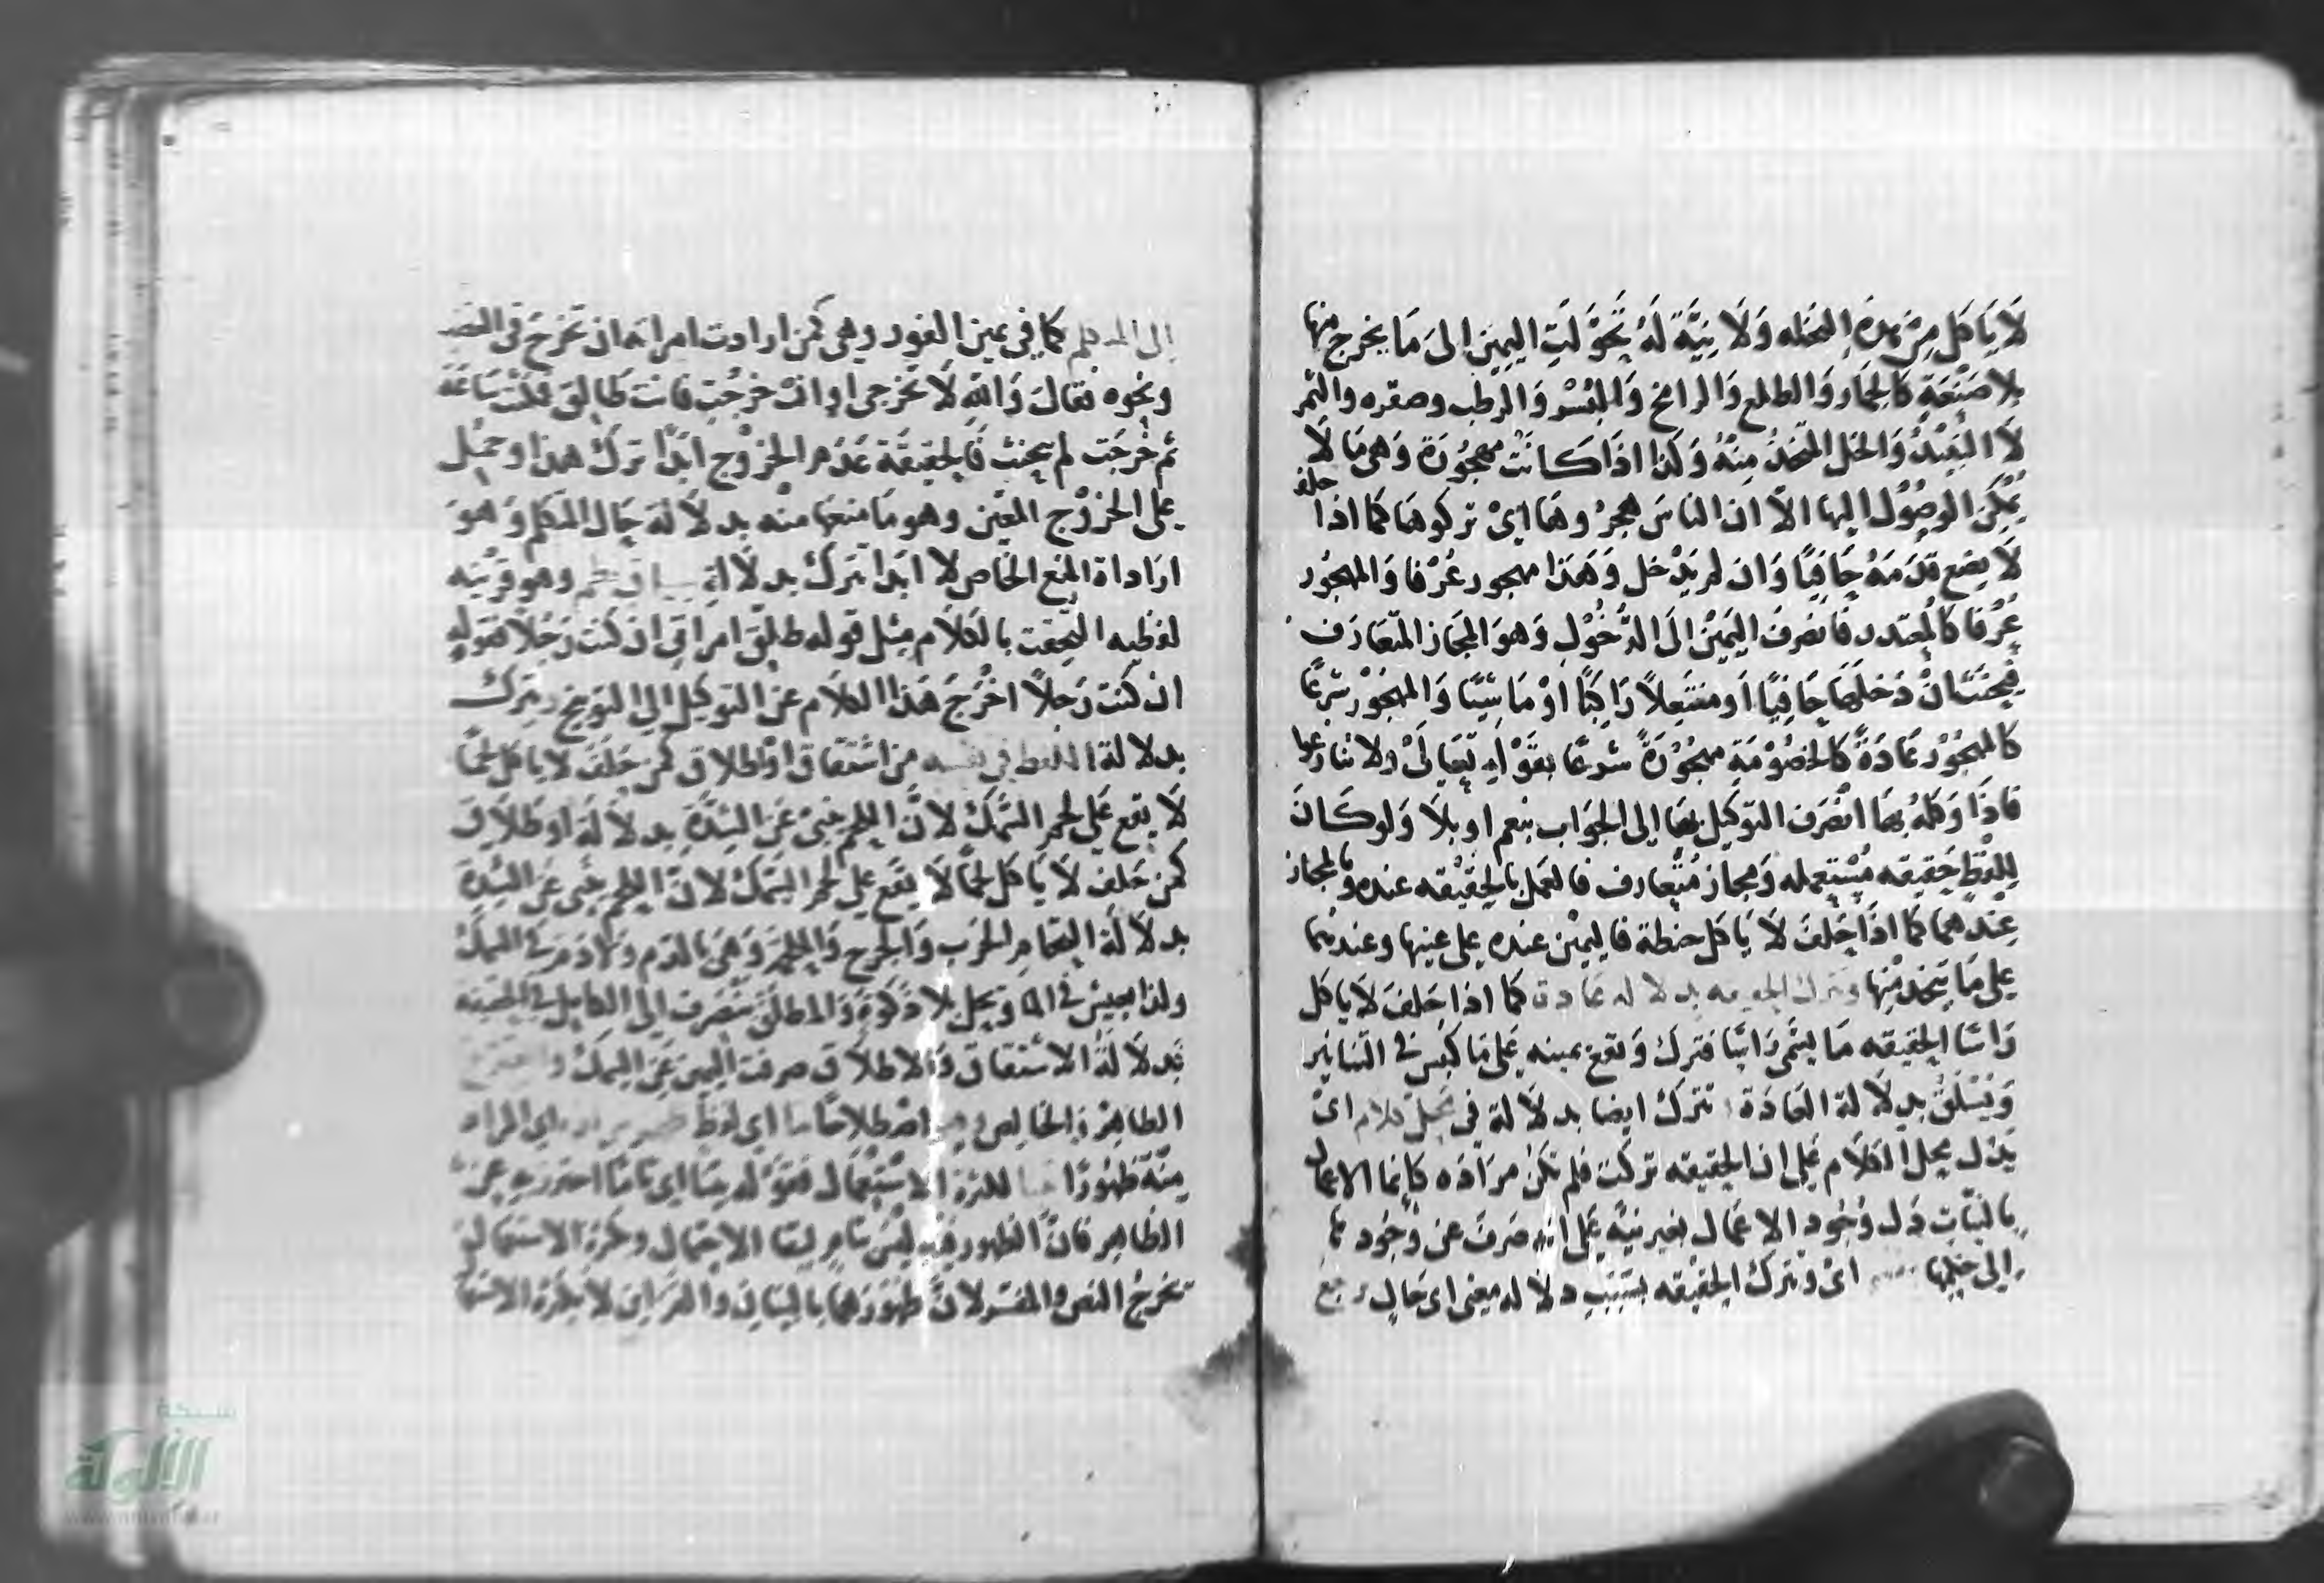 لَا يَاكل مِن هذه النخله وَلَا نِيَّةَ لَهُ تَحَوَّلَتِ اليمين الى مَا يخرج منها
بلا صَنْعَةٍ كالجمار وَالطلع وَالرامخ وَالبُسْر وَالرطب وصقره والتمر
لَا النَبِيْذُ وَالخل المتخذُ مِنهُ وَكذا اذَا كانت مهجُورَة وَهى مَا لَا
يمكن الوصُوْل اليها الّا ان الناسَ هجرُ وهَا اىْ تركوهَا كما اذا حلف
لَا يضع قدَمَهُ حَافِيًا وَان لم يَدْخل وَهَذا مهجور عُرْفا وَالمهجُور
عُرْفا كالمتعذر فانصرفَ اليَمِيْنُ الَى الدُّخُوْلِ وَهوَ المجَاز المتعَارَف
فيحنثُ انْ دَخلَهَا حَافِيًا اَو منتعِلاً رَاكبًا اوْ مَاشِيًا وَالمهجُوْر شرعًا
كالمهجُوْر عَادَةً كالخصُوْمَةِ مهجُوْرَةً شرعًا بقوْلهِ تعَالَى ولا تنازعوا
فاذَا وَكلهُ بهَا انصَرَف التوكيل بهَا الى الجوَاب بنعم او بلا وَلو كَانَ
لِلفظِ حَقيقه مُسْتعمله وَمجاز مُتعارف فالعمل بالحقيْقه عنده وبالمجاز
عِندهما كما اذَا حَلفَ لَا يَاكل حنطة فاليميْن عنده على عينها وعندهما
على مَا يتخذ مِنها وتترك الحقيقه بدلاله عَادة كما اذا حَلفَ لَا ياكل
رَاسًا الحقيقه مَا يسمى رَاسًا فترك وَتقع يمينه على مَا يكبس فى التنانير
وَيُسْلَقُ بدِلَالة العَادَة تترك ايضا بدلَالة فى محل كلام اىْ
يَدل محل الكلَام عَلى ان الحقيقه تركت فلم تكن مرَادَه كانما الاعمال
بالنيّات دَل وُجُود الاعمَال بغير نيّة عَلى انه صَرفَ عن وُجُود
الى حكمها اىْ وتترك الحقيْقه بسَبَبِ دلَاله معنى اى حَال
الى المتكلم كما فى يمين الفور وهى كمن ارادت امراته ان تخرجَ فى الغضب
ونحوه فقالَ وَالله لَا تخرجى او انْ خرجْتِ فانت طَالِق فمكثت سَاعَة
ثم خرجَت لم يحنث فَالحقيقة عَدَم الخرُوْج ابَدًا ترك هذا وحمل
على الخرُوْج المعَين وهو مَا منعَها منه بدلَالة حَال المتكلم وَهوَ
ارَاداة المنع الخاص لا ابَدا تترك بدلَالةِ سياق نظم وهو قرْينه
لفظيه التحقت بالكلَام مِثل قوله طلق امراتى ان كنت رَجُلاً فقوله
ان كنت رَجلاً اخرَجَ هَذا الكلَام عن التوكيل الى التوبيخ وتترك
بدلالة اللفظ فى نفسه من اشتقاق او اطلاق كمن حَلَفَ لا ياكل لحمًا
لَا يقع عَلى لحم السَّمَك لانَّ اللحم يبنى عن الشدَّةِ بدلَالَة او طَلَاق
كمن حَلف لَا يَاكل لحمًا لَا يقع على لحم السَّمَك لانَّ اللحم يبنى عن الشدة
بدلَالَة التحام الحَرب وَالجرح وَالملحم وَهى بالدم وَلَا دم فى السمك
ولذا يعيش فى الما ويحل بلا ذكوة وَالمطلق ينصَرف الى الكامل فى الحقيقه
بَدلَالَة الاشتقاق وَالاطلَاق صرفت اليمين عَن السمك
الظاهِر وَالخالص اصْطلاحًا اى لفظ المراد
مِنْهُ ظهُورًا لكثرة الاستِعْمَال فقوْله بينا اى تامًا احترز بهِ عن
الظاهر فانَّ الظهور فيْهِ ليْسَ بتام لبقا الاحتمال وكثرة الاستعمال
تخرجُ النص والمفسر لانَّ ظهُوْرَهمَا بالبَيَان والقرَاين لَا بكثرَة الاستعمال